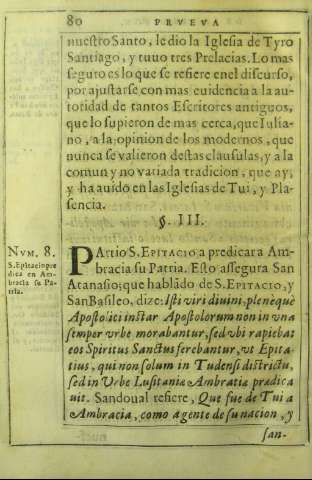 80 PRVEVA
nuestro Santo, le dio la Iglesia de Tyro
Santiago, y tuuo tres Prelacias. Lo mas
seguro es lo que se refiere en el discurso,
por ajustarse con mas euidencia a la au-
toridad de tantos Escritores antiguos,
que lo supieron de mas cerca, que Iulia-
no, a la opinion de los modernos, que
nunca se valieron destas clausulas, y a la
comun y no variada tradicion, que ay,
y ha auido en las Iglesias de Tui, y Pla-
sencia.
§. III.
NVM. 8.
S. Epitacio pre
dica en Am-
bracia su Pa-
tria.
PArtio S. EPITACIO a predicar a Am-
bracia su Patria. Esto assegura San
Atanasio; que hablãdo de S. EPITACIO, y
San Basileo, dize: Isti viri diuini, pleneque
Apostolici instar Apostolorum non in vna
semper vrbe morabantur, sed vbi rapiebat
eos Spiritus Sanctus ferebantur, vt Epita-
tius, qui non solum in Tudensi districtu,
sed in Vrbe Lusitania Ambratia prædica
uit. Sandoual refiere, Que fue de Tui a
Ambracia, como a gente de su nacion, y
san-